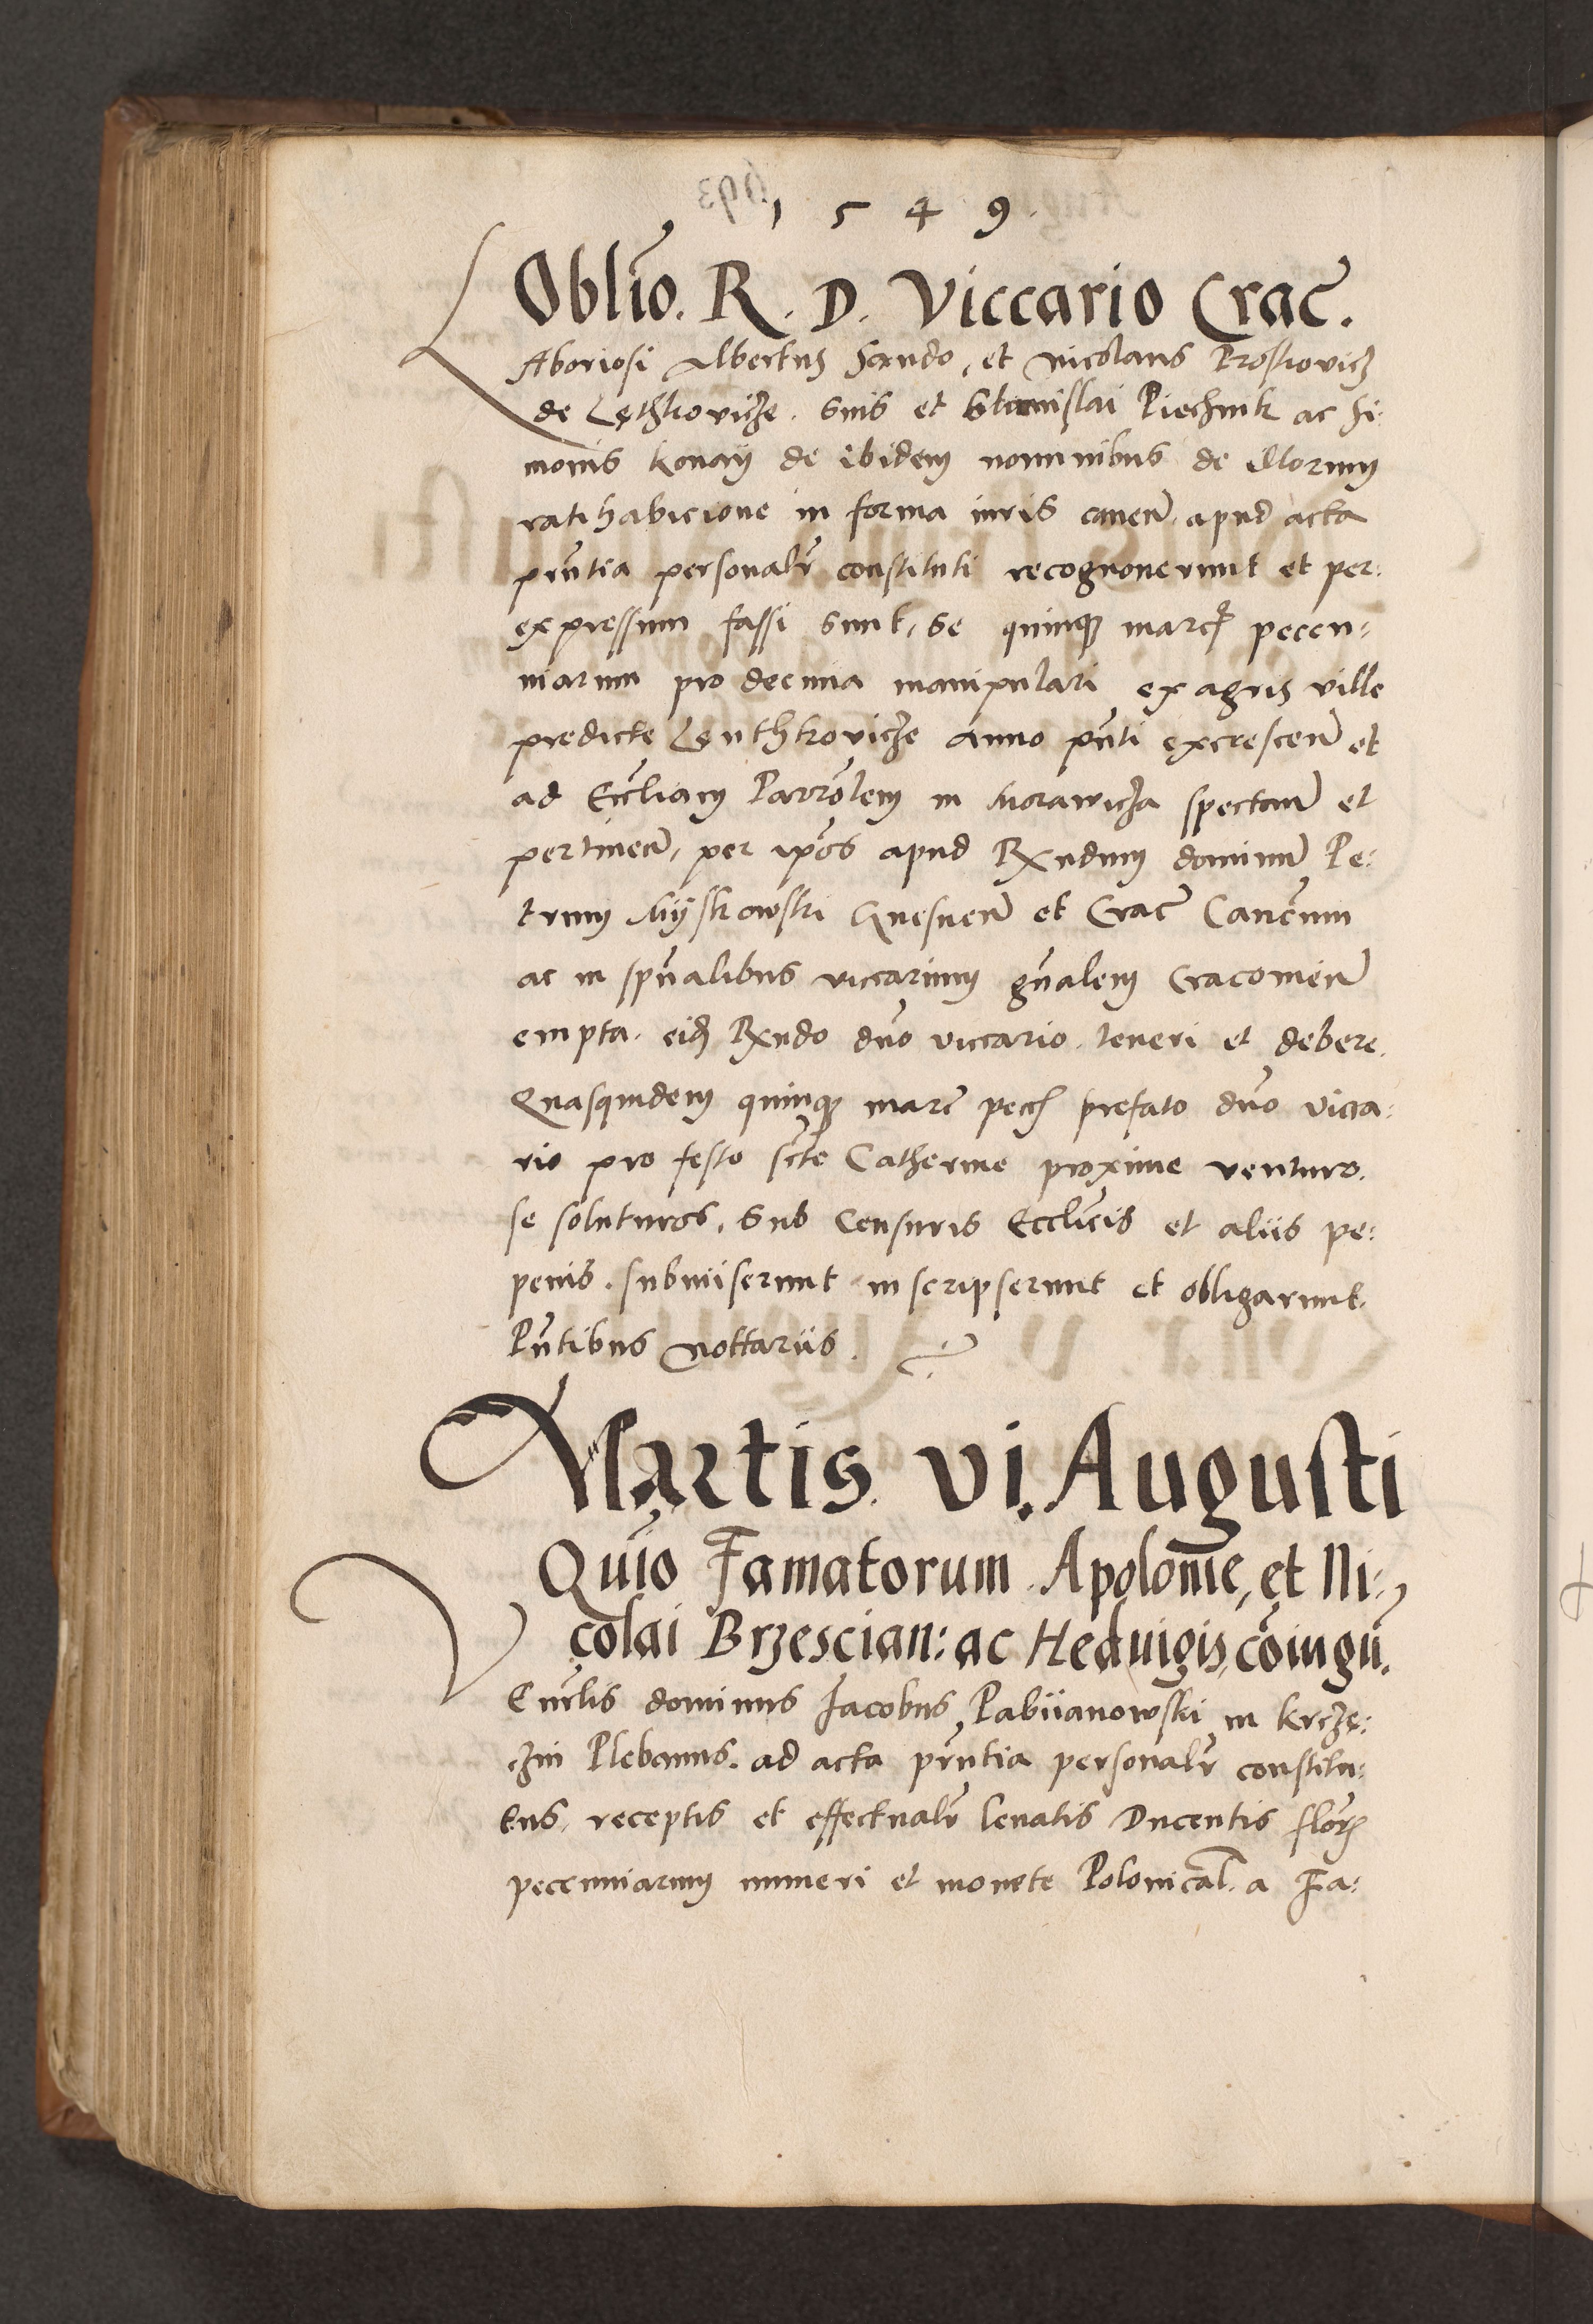 1 5 4 9.
Oblio͂. R. D. Viccario Crac̃.
LAboriosi Albertus Sando, et Nicolaus Broskovicz
de Lęthkovicze. Suis et Stanislai Piechnik ac Si:
monis Konary de ibidem nominibus de illorum
ratihabicione in forma iuris canen̄. apud acta
pñtia personalr̃ constituti recognoverunt et per:
expressum fassi sunt, se quinq3 marcẜ pecen:
niarum pro decima manipulari ex agris ville
predicte Lęnthkovicze anno pñti excrescen̄ et
ad Eccl̃iam Parrõlem in Morawicza spectan̄ et
pertinen̄, per ip̃os apud Rx̃ndum dominũ Pe:
trum Myskowski Gnesnen̄ et Crac̃ Canc̃um
ac in spũalibus viccarium gñalem Cracovien̄
empta. eid̃ Rx̃ndo dño viccario. teneri et debere.
Quasquidem quinq3 marc̃ pecc̃ prefato dño vicca:
rio pro festo sc̃te Catherine proxime venturo.
se soluturos. Sub Censuris Eccl̃icis et aliis pe:
penis. submiserunt inscripserunt et obligarunt.
Pñtibus Nottariis.
Martis. vi. Augusti
Quĩo Famatorum. Apolonie, et Ni:
colai Brzescian: ac Hedvigis, cõiugũ.
VEn̄elis dominus Jacobus Pabiianowski in Krczę:
czin Plebanus. ad acta pr̃ntia personalr̃ constitu:
tus, receptis et effectualr̃ levatis Ducentis flor̃
peccuniarum numeri et monete Polonical̃. a Fa: